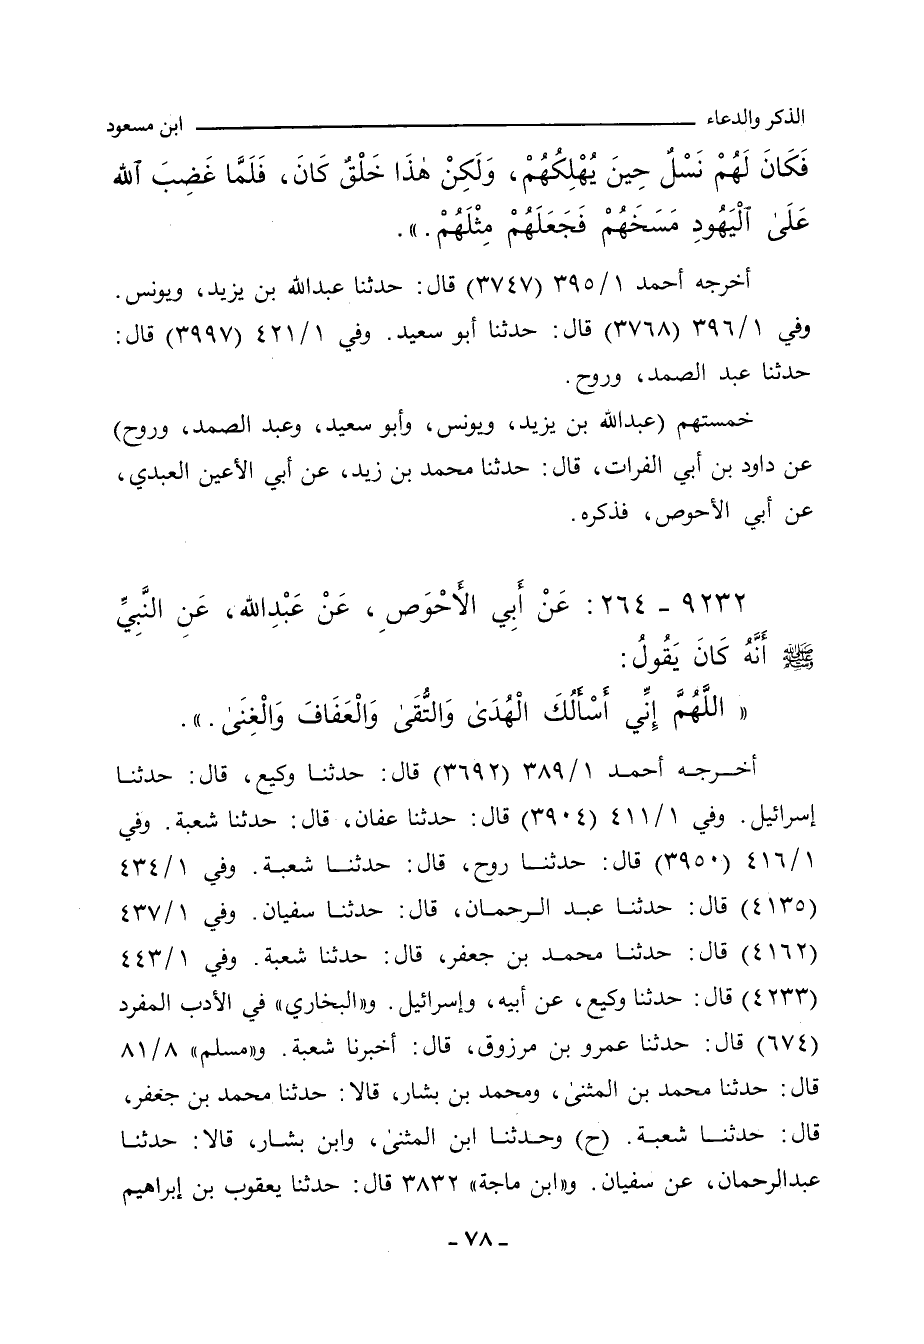 الذكر والدعاء ــــــــــــــــــــــــــــــــ ابن مسعود
فَكَانَ لَهُمْ نَسْلٌ حِينَ يُهْلِكُهُمْ، وَلَكِنْ هٰذَا خَلْقٌ كَانَ، فَلَمَّا غَضِبَ ٱللّه
عَلَىٰ الْيَهُودِ مَسَخَهُمْ فَجَعَلَهُمْ مِثْلَهُمْ.».
أخرجه أحمد ٣٩٥/١ (٣٧٤٧) قال: حدثنا عبدالله بن يزيد، ويونس.
وفي ٣٩٦/١ (٣٧٦٨) قال: حدثنا أبو سعيد. وفي ٤٢١/١ (٣٩٩٧) قال:
حدثنا عبد الصمد، وروح.
خمستهم (عبدالله بن يزيد، ويونس، وأبو سعيد، وعبد الصمد، وروح)
عن داود بن أبي الفرات، قال: حدثنا محمد بن زيد، عن أبي الأعين العبدي،
عن أبي الأحوص، فذكره.
٩٢٣٢ - ٢٦٤: عَنْ أَبِي الأَحْوَصِ، عَنْ عَبْدِاللهِ، عَنِ النَّبِيِّ
ﷺ أَنَّهُ كَانَ يَقُولُ:
« اللَّهُمَّ إِنِّي أَسْأَلُكَ الْهُدَىٰ وَالتُّقَىٰ وَالْعَفَافَ وَالْغِنَىٰ.».
أخرجه أحمد ٣٨٩/١ (٣٦٩٢) قال: حدثنا وكيع، قال: حدثنا
إسرائيل. وفي ٤١١/١ (٣٩٠٤) قال: حدثنا عفان، قال: حدثنا شعبة. وفي
٤١٦/١ (٣٩٥٠) قال: حدثنا روح، قال: حدثنا شعبة. وفي ٤٣٤/١
(٤١٣٥) قال: حدثنا عبد الرحمان، قال: حدثنا سفيان. وفي ٤٣٧/١
(٤١٦٢) قال: حدثنا محمد بن جعفر، قال: حدثنا شعبة. وفي ٤٤٣/١
(٤٢٣٣) قال: حدثنا وكيع، عن أبيه، وإسرائيل. و«البخاري» في الأدب المفرد
(٦٧٤) قال: حدثنا عمرو بن مرزوق، قال: أخبرنا شعبة. و«مسلم» ٨١/٨
قال: حدثنا محمد بن المثنىٰ، ومحمد بن بشار، قالا: حدثنا محمد بن جعفر،
قال: حدثنا شعبة. (ح) وحدثنا ابن المثنىٰ، وابن بشار، قالا: حدثنا
عبدالرحمان، عن سفيان. و«ابن ماجة» ٣٨٣٢ قال: حدثنا يعقوب بن إبراهيم
- ٧٨ -